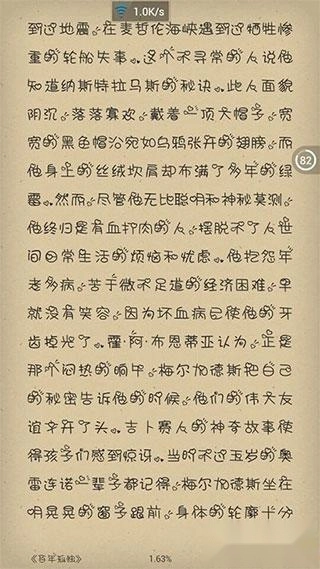 1.0K/s
到过地震。在麦哲伦海峡遇到过牺牲惨
重的轮船失事。这个不寻常的人说他
知道纳斯特拉马斯的秘诀。此人面貌
阴沉，落落寡欢，戴着一顶大帽子，宽
宽的黑色帽沿宛如乌鸦张开的翅膀，而
他身上的丝绒坎肩却布满了多年的绿
霉。然而，尽管他无比聪明和神秘莫测，
他终归是有血打肉的人，摆脱不了人世
间日常生活的烦恼和忧虑。他抱怨年
老多病，苦于微不足道的经济困难，早
就没有笑容，因为坏血病已使他的牙
齿掉光了。霍·阿·布恩蒂亚认为，正是
那个闷热的晌午，梅尔加德斯把自己
的秘密告诉他的时候，他们的伟大友
谊才开了头。吉卜赛人的神奇故事使
得孩子们感到惊讶。当时不过五岁的奥
雷连诺一辈子都记得，梅尔加德斯坐在
明晃晃的窗子跟前，身体的轮廓十分
82
《百年孤独》
1.63%